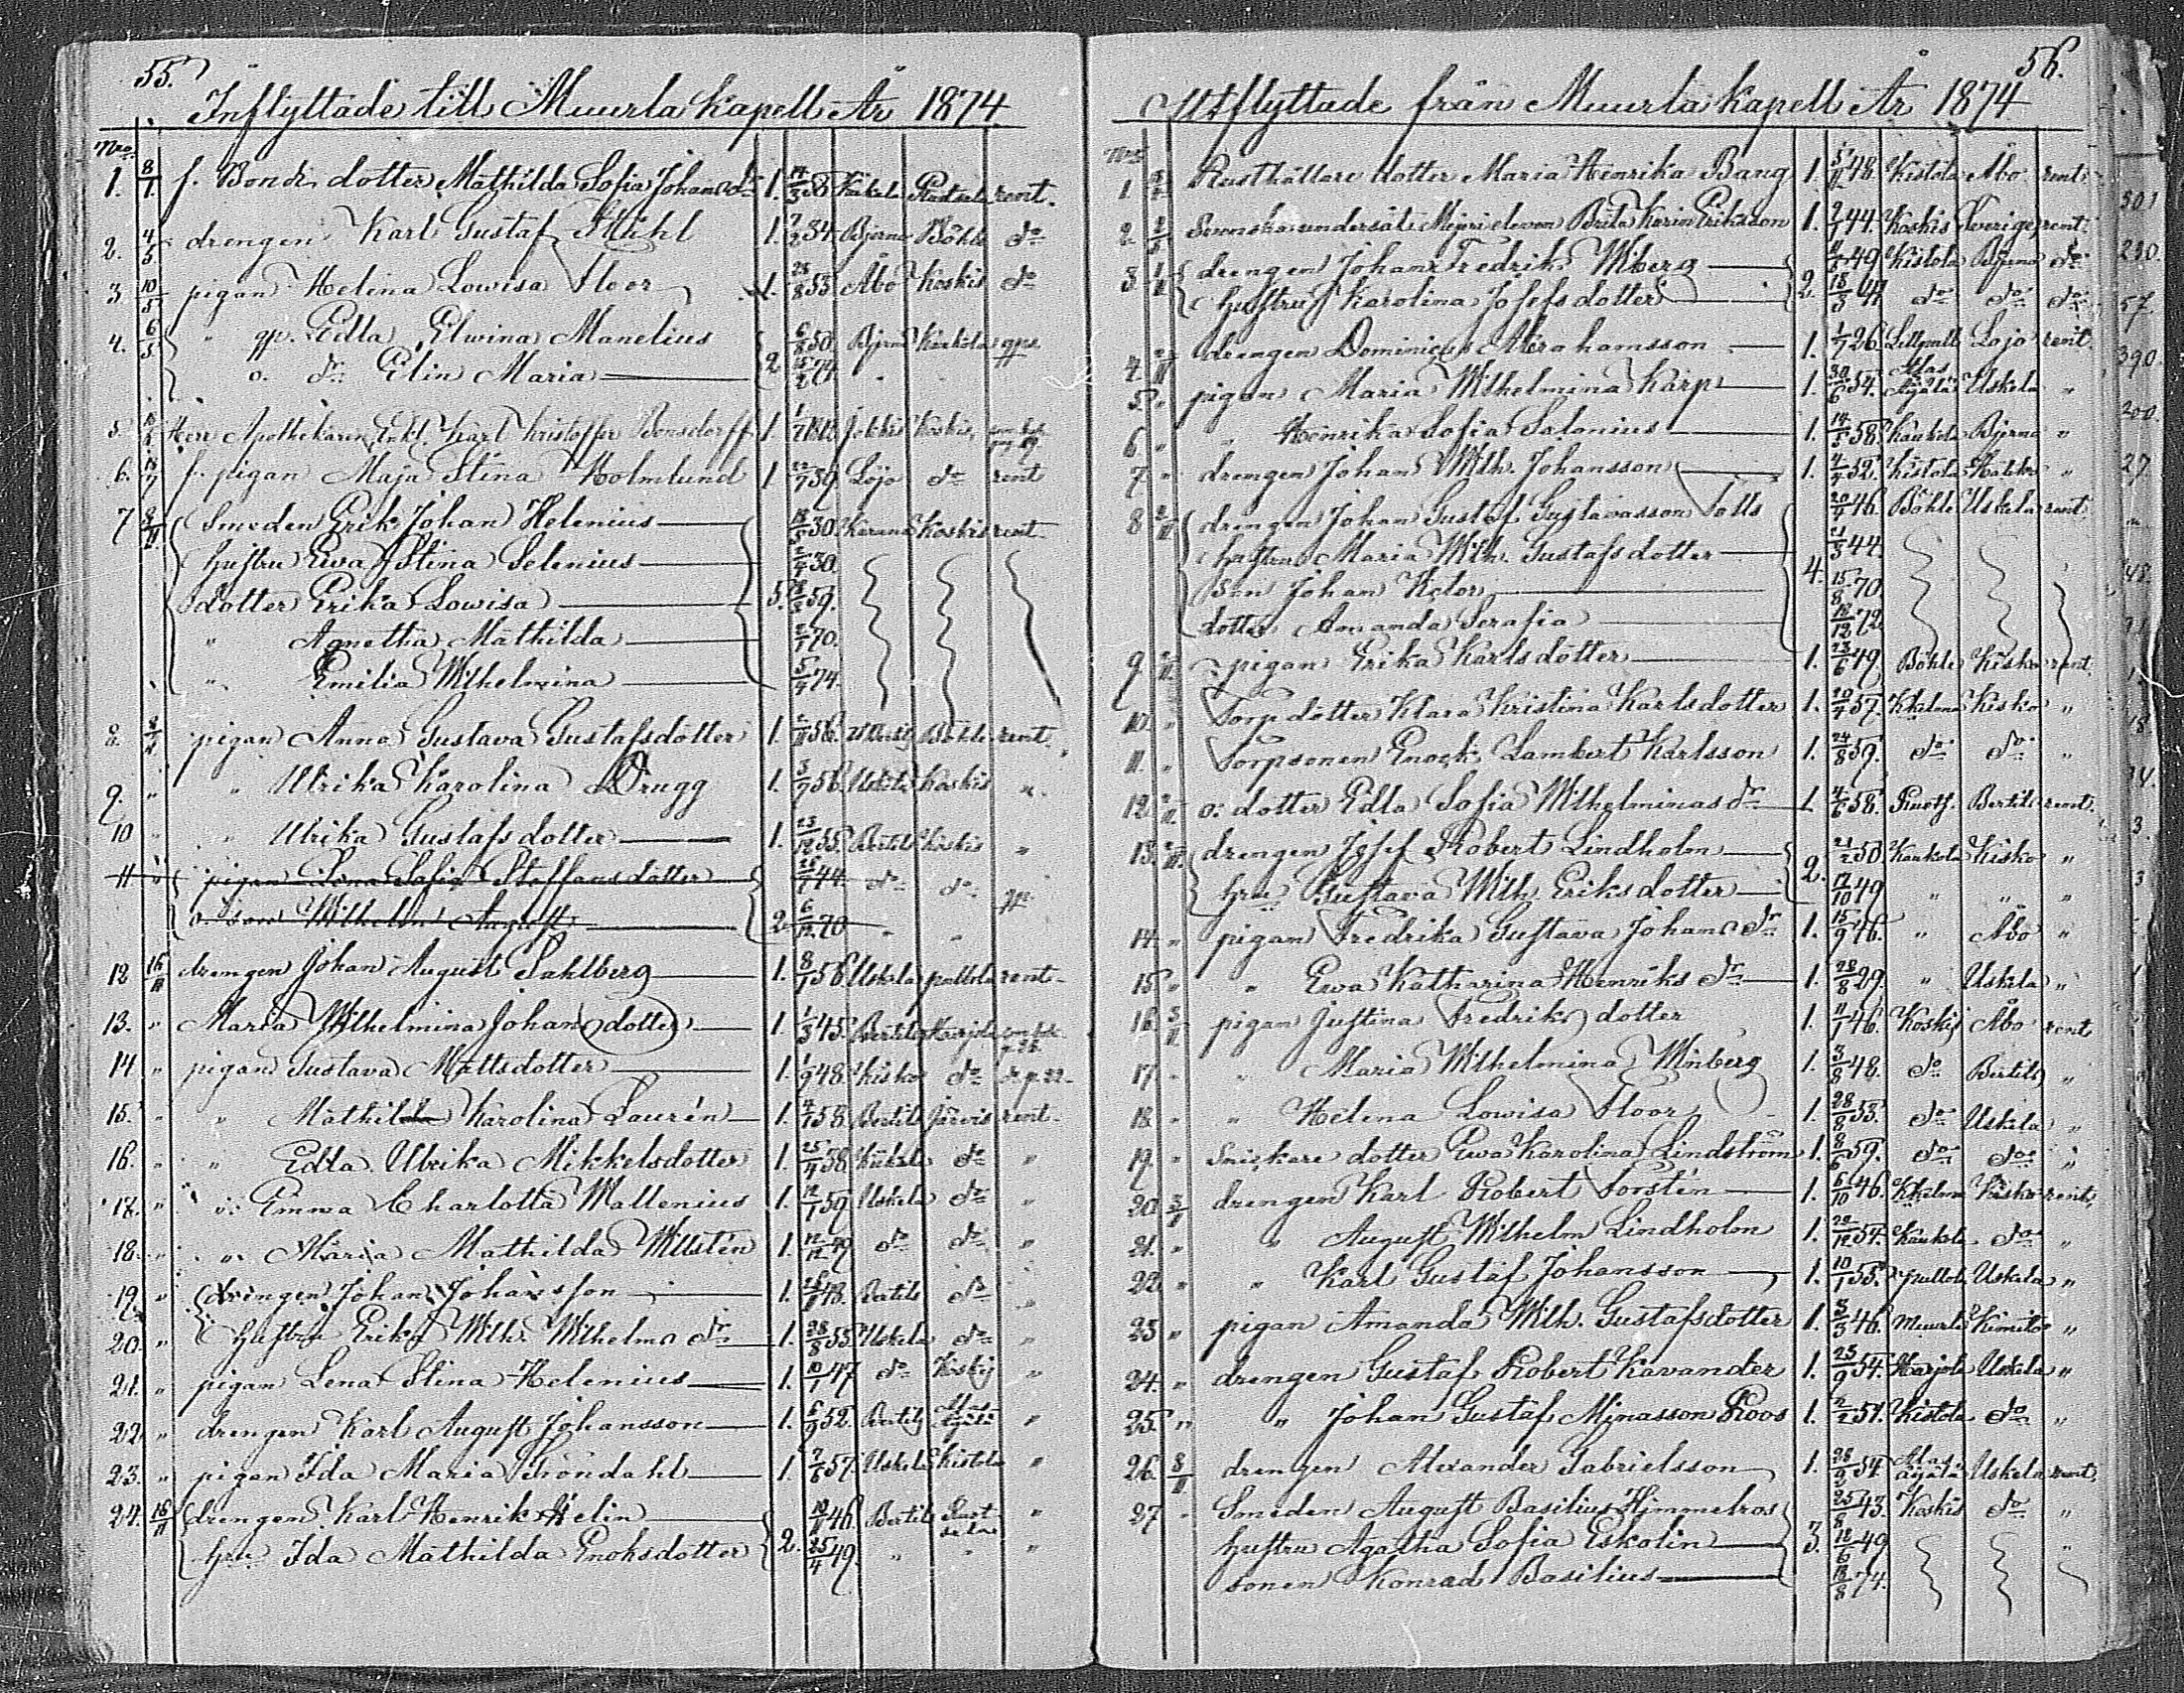 55.
Inflyttade till Muurla kapell År 1874.
Nro.
1. 8/1 f. Bonde dotter Mathilda Sofia Johans dr 1. rent.
2. 4/5 drengen Karl Gustaf Ståhl 1. 7/2 34. Bjerno Böhle do
3 10/5 pigan Helina Lowisa Floor 1. 28/8 53. Åbo Koskis do
4. 6/5 " Edla Elwina Manelius 6/8 50. Bjerno Kaukola
o. dr Elin Maria 2 15/2 74.
5. Herr Apothekaren Karl Kristoffer Bonsdorff 1. 1/7 1812 Jokkis Koskis
6. f. pigan Maja Stina Holmlund 1 22/7 39. Lojo do rent
7 Smeden Erik Johan Helenius 18/5 30. Karuna Koskis rent.
hustru Ewa Stina Selenius 2/4 30.
dotter Erika Lowisa 5. 59.
" Agnetha Mathilda 70.
" Emilia Wilhelmina 5/4 74.
8. pigan Anna Gustava Gustafsdotter 1. 2/11 56. Böhle rent.
9. " " Ulrika Karolina Drugg 1. 3/7 56. Uskela Koskis ".
10 " " Ulrika Gustafs dotter 1. 23/12 55. Bertils Koskis "
11 pigan Lena Sofia Staffans dotter 44. do do
o. son Wilhelm August 2 6/12 70 " "
12 15/11 drengen Johan August Sahlberg 1. 8/1 56 Uskela pullola rent.
13. " Maria Wilhelmina Johans dotter 1. 1/3 45. Bertils Harjola
14 " pigan Gustava Mattsdotter 1. 1/9 48. Kisko do p. 22.
15. " " Mathilda Karolina Laurén 1. 4/7 58. Bertils Järvis rent.
16. " " Edla Ulrika Mikkelsdotter 1. 25/4 38. Kiikala do "
17. " " Emma Charlotta Wallenius 1. 12/1 59. Uskela do "
18. " " Maria Mathilda Willstén 1. 12/12 49 do do "
19. " drengen Johan Johansson 1. 48. Bertils do "
20. " hustru Erika Wilh. Wilhelms dr 1. 28/8 55. Uskela do "
21. " pigan Lena Stina Helenius 1. 10/1 47 do Koskis "
22. " drengen Karl August Johansson 1. 6/9 52. Bertils "
23. " pigan Ida Maria Gröndahl 1. 7/6 57. Uskela Kistola "
24. 16/11 drengen Karl Henrik Helin 10/11 46. Bertils Ruotsala "
hru Ida Mathilda Enoksdotter 2. 25/4 49. " " "
56.
Utflyttade från Muurla kapell År 1874
Nro
1 Rusthållare dotter Maria Henrika Bang 1. 5/11 48. Kistola Åbo rent.
2. Swenska undersåt. Mejerieleven Brita Karin Eriksson 1. 2/7 44. Koskis Sverige rent.
3 drengen Johan Fredrik Wiberg 49 Kistola Bjerno do
hustru Karolina Josefs dotter 2. 18/3 47 do do do
4. drengen Dominicus Abrahamsson 1. 1/7 26. Lojo rent.
5. " pigan Maria Wilhelmina Karp 1. 30/6 54. Alas Äijälä Uskela "
6 " " Henrika Sofia Salonius 1. 14/5 58. Kaukola Bjerno "
7. " drengen Johan Wilh. Johansson 1. 4/4 52. Kistola Halikko "
8 drengen Johan Gustaf Gustavasson Tolls 20/4 46. Böhle Uskela rent.
hustru Maria Wilh. Gustafs dotter 21/3 44.
Son Johan Victor 4. 15/8 70.
dotter Amanda Serafia 18/12 72
9. pigan Erika Karls dotter 1. 23/6 49. Böhle Kisko rent.
10. " Torp dotter Klara Kristina Karlsdotter 1. 20/4 57. Kisko "
11. " Torpsonen Enock Lambert Karlsson 1. 24/8 59. do do "
12. o: dotter Edla Sofia Wilhelminas dr 1 4/6 58. Ruots. Bertils rent.
13. drengen Josef Robert Lindholm 21/2 50 Kaukola Kisko "
hru Gustava Wilh. Eriks dotter 2. 17/10 49 " " "
14. " pigan Fredrika Gustava Johans dr 1. 15/9 46. " Åbo "
15. " " Ewa Katharina Henriks dr 1. 28/8 29. " Uskela "
16. pigan Justina Fredriks dotter 1. 11/1 46. Koskis Åbo rent
17. " " Maria Wilhelmina Winberg 1. 3/8 48. do Bertils "
18. " " Helena Lowisa Floor 1. 28/8 53. do Uskela "
19. " Snickare dotter Ewa Karolina Lindström 1. 8/6 59. do do "
20. drengen Karl Robert Torstén 1. 6/10 46. Kisko rent.
21. " " August Wilhelm Lindholm 1. 22/12 54. Kaukola do "
22. " " Karl Gustaf Johansson 1. 10/1 55. pullola Uskela "
23 " pigan Amanda Wilh. Gustafsdotter 1. 46. Muurla Kimito "
24. " drengen Gustaf Robert Kavander 1. 25/9 54. Harjola Uskela "
25. " " Johan Gustaf Minasson Roos 1. 2/2 51. Kistola do "
26. 8/11 drengen Alexander Gabrielsson 1. 28/9 54 Alas Äijälä Uskela rent.
27 " Smeden August Basilius Himmelros 25/8 43. Koskis do "
hustru Agatha Sofia Eskolin 3. 12/6 49 "
sonen Konrad Basilius 18/8 74.